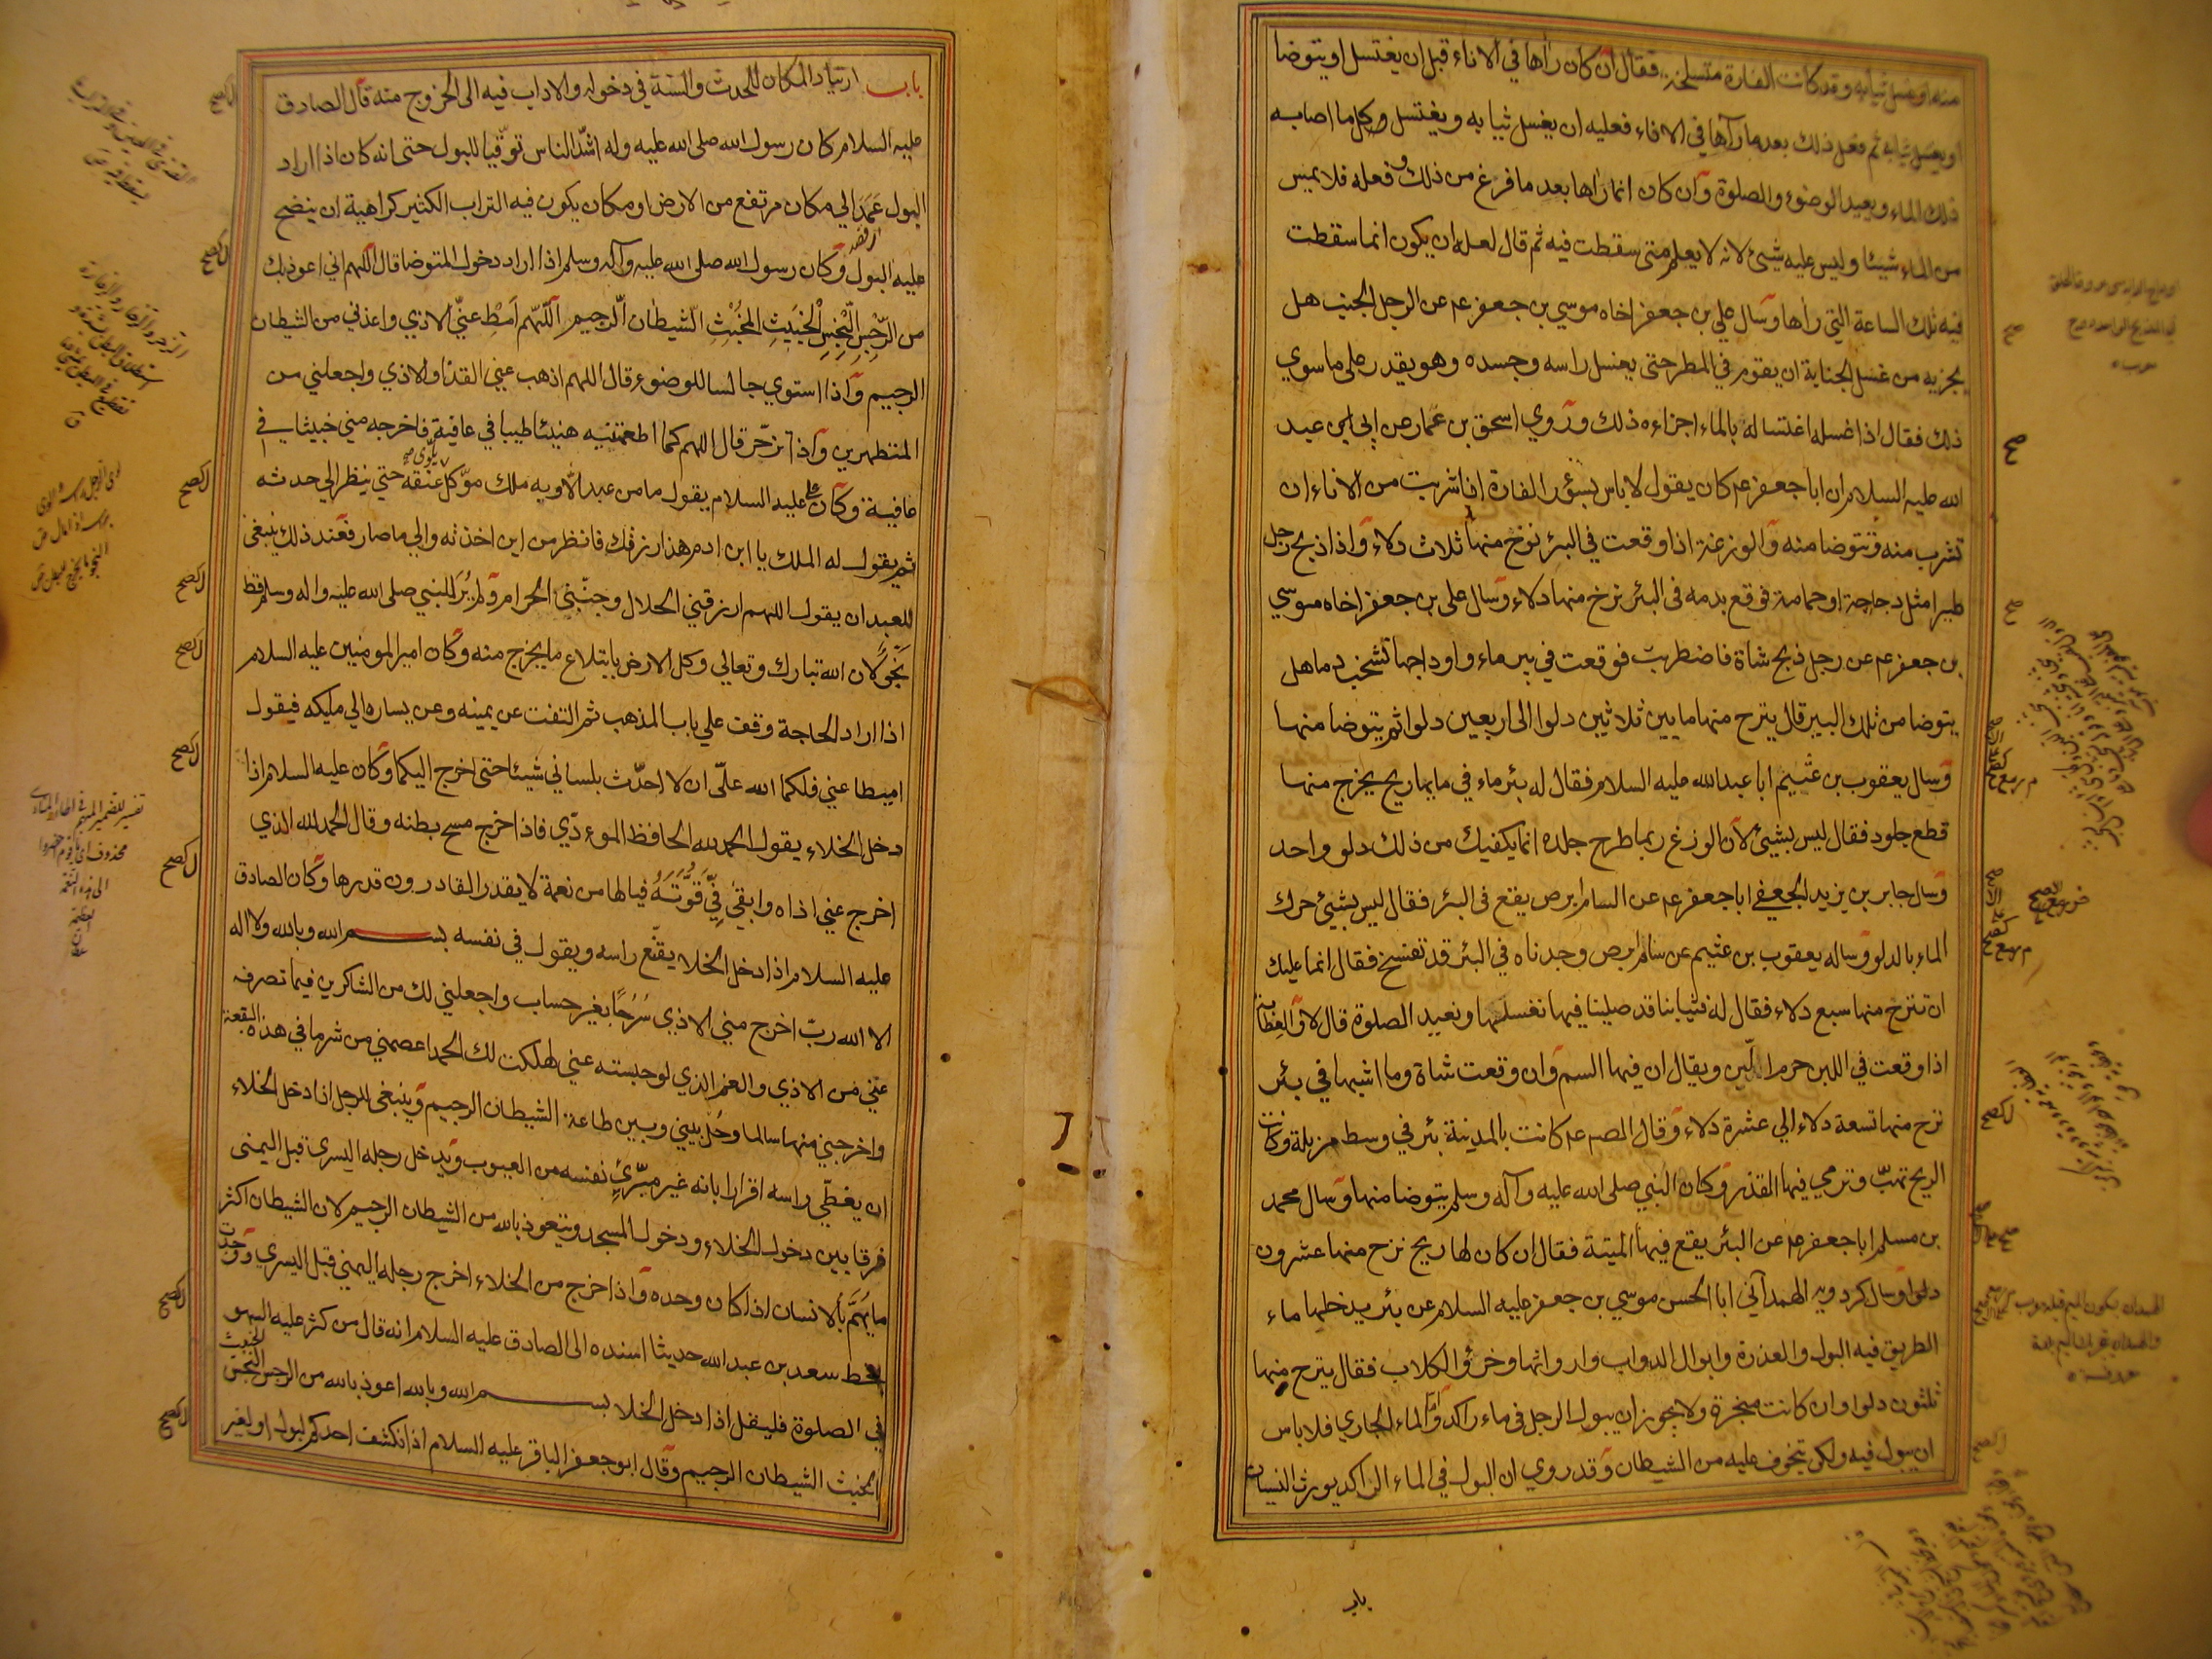 منه او غسل ثيابه وقد كانت الفارة متسلخة فقال ان كان راها في الاناء قبل ان يغتسل او يتوضا
او يغسل ثيابه ثم فعل ذلك بعد ما رآها في الاناء فعليه ان يغسل ثيابه ويغتسل وكل ما اصابه
ذلك الماء ويعيد الوضوء والصلوة وان كان انما راها بعد ما فرغ من ذلك وفعله فلا يمس
من الماء شيئا وليس عليه شيئ لانه لا يعلم متى سقطت فيه ثم قال لعله ان يكون انما سقطت
فيه تلك الساعة التي راها وسال علي بن جعفر اخاه موسي بن جعفر عم عن الرجل الجنب هل
يجزيه من غسل الجنابة ان يقوم في المطر حتى يغسل راسه وجسده وهو يقدر على ما سوي
ذلك فقال اذا غسله اغتساله بالماء اجزاءه ذلك وروي اسحق بن عمار عن ابي عبد
الله عليه السلام ان ابا جعفر عم كان يقول لا باس بسؤر الفارة اذا شربت من الاناء ان
تشرب منه وتتوضا منه والوزغة اذا وقعت في البئر نزح منها ثلاث دلاء واذا ذبح رجل
طيرا مثل دجاجة او حمامة فوقع بدمه في البئر نزح منها دلاء وسال على بن جعفر اخاه موسي
بن جعفر عم عن رجل ذبح شاة فاضطربت فوقعت في بير ماء واوداجها تشخب دما هل
يتوضا من تلك البير قال ينزح منها ما بين ثلاثين دلوا الى اربعين دلوا ثم يتوضا منها
وسال يعقوب بن عثيم ابا عبدالله عليه السلام فقال له بئر ماء في مايها ريح يخرج منها
قطع جلود فقال ليس بشيئ لان الوزغ ربما طرح جلده انما يكفيك من ذلك دلو واحد
وسال جابر بن يزيد الجعفي ابا جعفر عم عن السام ابرص يقع في البئر فقال ليس بشيئ حرك
الماء بالدلو وساله يعقوب بن عثيم عن سام ابرص وجدناه في البئر قد تفسخ فقال انما عليك
ان تنزح منها سبع دلاء فقال له فثيابنا قد صلينا فيها نغسلها ونعيد الصلوة قال لا والعظاية
اذا وقعت في اللبن حرم اللبن ويقال ان فيها السم وان وقعت شاة وما اشبهها في بئر
نزح منها تسعة دلاء الي عشرة دلاء وقال الصم عم كانت بالمدينة بئر في وسط مزبلة وكانت
الريح تهبّ وترمي فيها القذر وكان النبي صلى الله عليه وآله وسلم يتوضا منها وسال محمد
بن مسلم ابا جعفر عم عن البئر يقع فيها الميتة فقال ان كان لها ريح نزح منها عشرون
دلوا وسال كردويه الهمداني ابا الحسن موسي بن جعفر عليه السلام عن بئر يدخلها ماء
الطريق فيه البول والعذرة وابوال الدواب وارواثها وخرؤ الكلاب فقال ينزح منها
ثلثون دلوا وان كانت مبخرة ولا يجوز ان يبول الرجل في ماء راكد واما الماء الجاري فلا باس
ان يبول فيه ولكن يتخوف عليه من الشيطان وقد روي ان البول في الماء الراكد يورث النسيان
باب
باب ارتياد المكان للحدث والسنة في دخوله والاداب فيه الى الخروج منه قال الصادق
عليه السلام كان رسول الله صلى الله عليه وله اشدّ الناس توقّيا للبول حتى انه كان اذا اراد
البول عَمَدَ الي مكان مرتفع من الارض او مكان يكون فيه التراب الكثير كراهية ان ينضح
عليه البول وكان رسول الله صلى الله عليه وآله وسلم اذا اراد دخول المتوضا قال اللهم اني اعوذ بك
من الرِّجْسِ النِّجِسِ الْخَبِيثِ الْمُخْبِثِ الشّيطانِ الرّجيم اللّهم اَمِطْ عنّي الاذي واعذني من الشيطان
الرجيم واذا استوي جالسا للوضوء قال اللهم اذهب عني القذا والاذي واجعلني من
المتطهرين واذا تزحّر قال اللهم كما اطعمتنيه هنيئا طيبا في عافية فاخرجه مني خبيثا في
عافية وكان علي عليه السلام يقول ما من عبد الا وبه ملك موكّل يلوّى عنقه حتي ينظر الي حدثه
ثم يقول له الملك يا ابن ادم هذا رزقك فانظر من اين اخذته والي ما صار فعند ذلك ينبغى
للعبد ان يقول اللهم ارزقني الحلال وجنّبني الحرام ولم يُرَ للنبي صلى الله عليه واله وسلم قط
نَجْوٌ لان الله تبارك وتعالي وكل الارض بابتلاع ما يخرج منه وكان امير المومنين عليه السلام
اذا اراد الحاجة وقف علي باب المذهب ثم التفت عن يمينه وعن يساره الي ملكيه فيقول
اميطا عني فلكما الله علَيّ ان لا احدّث بلساني شيئا حتى اخرج اليكما وكان عليه السلام اذا
دخل الخلاء يقول الحمد لله الحافظ المودّي فاذا خرج مسح بطنه وقال الحمد لله الذي
اخرج عني اذاه وابقي فيّ قوّته فيا لها من نعمة لا يقدر القادرون قدرها وكان الصادق
عليه السلام اذا دخل الخلا يقنّع راسه ويقول في نفسه بسم الله وبالله ولا اله
الا الله ربّ اخرج مني الاذي سُرُحًا بغير حساب واجعلني لك من الشاكرين فيما تصرفه
عنّي من الاذي والغم الذي لو حبسته عني هلكت لك الحمد اعصمني من شر ما في هذه البقعة
واخرجني منها سالما وحُل بيني وبين طاعة الشيطان الرجيم وينبغى للرجل اذا دخل الخلاء
ان يغطّي راسه اقرارا بانه غير مبرّئ نفسه من العيوب ويدخل رجله اليسرى قبل اليمنى
فرقا بين دخول الخلاء ودخول المسجد ويتعوذ بالله من الشيطان الرجيم لان الشيطان اكثر
ما يَهُمُّ بالانسان اذا كان وحده واذا خرج من الخلاء اخرج رجله اليمني قبل اليسرى ووجدت
بخط سعد بن عبد الله حديثا اسنده الى الصادق عليه السلام انه قال من كثر عليه السهو
في الصلوة فليقل اذا دخل الخلا بسم الله وبالله اعوذ بالله من الرجس النجس الخبيث
المخبث الشيطان الرجيم وقال ابو جعفر الباقر عليه السلام اذا انكشف احدكم لبول او لغير